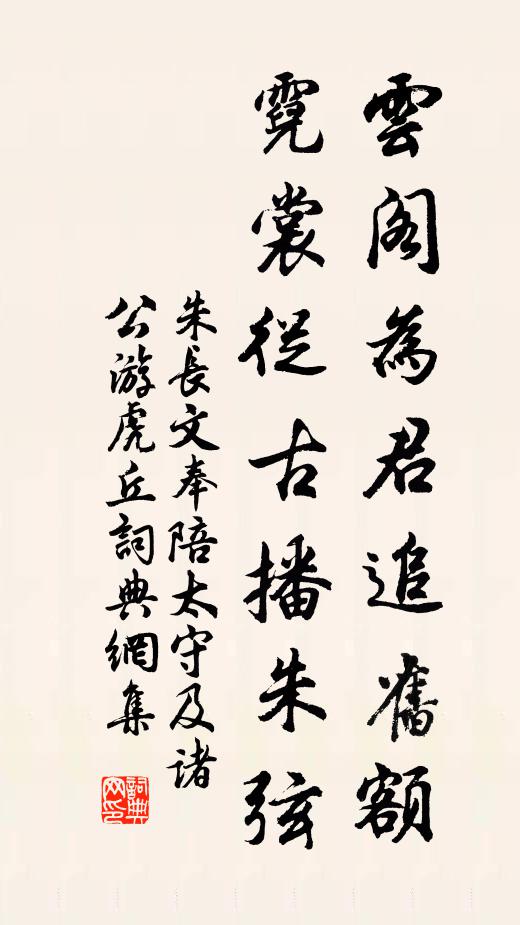 雲閣為君追舊額
霓裳從古播朱弦
朱長文奉陪太守及諸
公游虎丘詞典網集
詞典网印